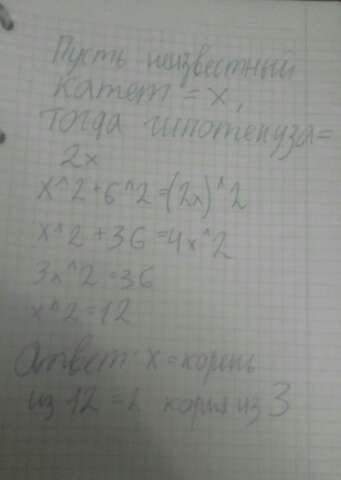 Пусть неизвестный
катет = x,
тогда гипотенуза=
2x
x^2+6^2=(2x)^2
x^2+36=4x^2
3x^2=36
x^2=12
Ответ: x=корень
из 12=2 корня из 3